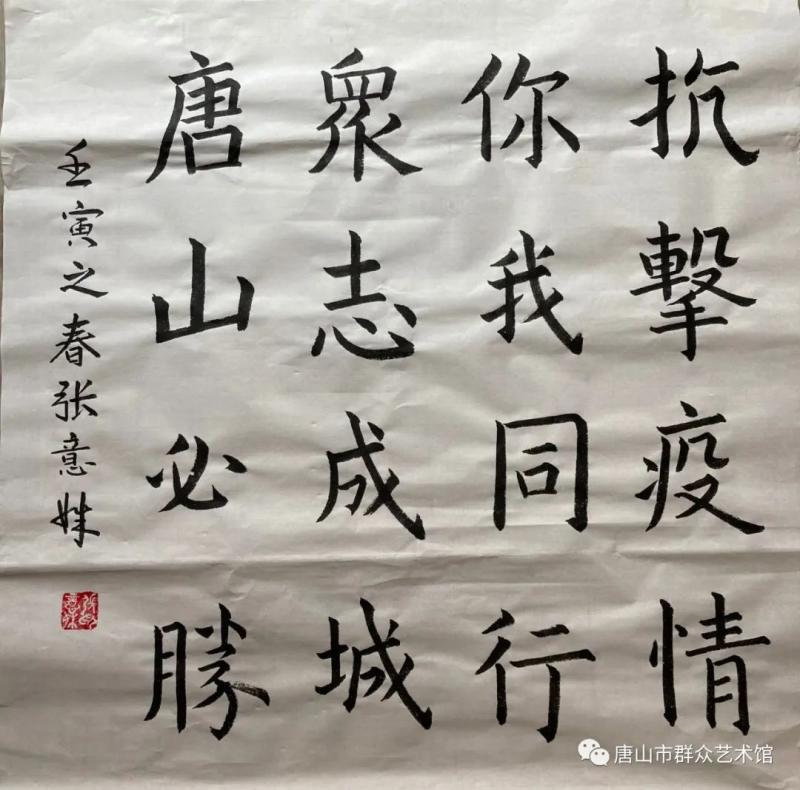 抗擊疫情
你我同行
眾志成城
唐山必勝
壬寅之春张意姝
唐山市群众艺术馆